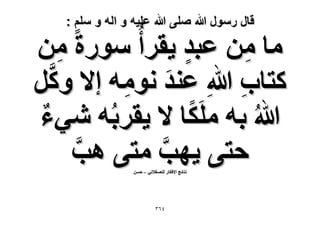 قال رسول الله صلى الله عليه و اله و سلم :
ما مِن عبدٍ يقرأُ سورةً مِن
كتابِ اللهِ عندَ نومِه إلا وكَّل
اللهُ به ملَكًا لا يقربُه شيءٌ
حتى يهبَّ متى هبَّ
نتائج الافكار للعسقلاني – حسن
٣٦٤